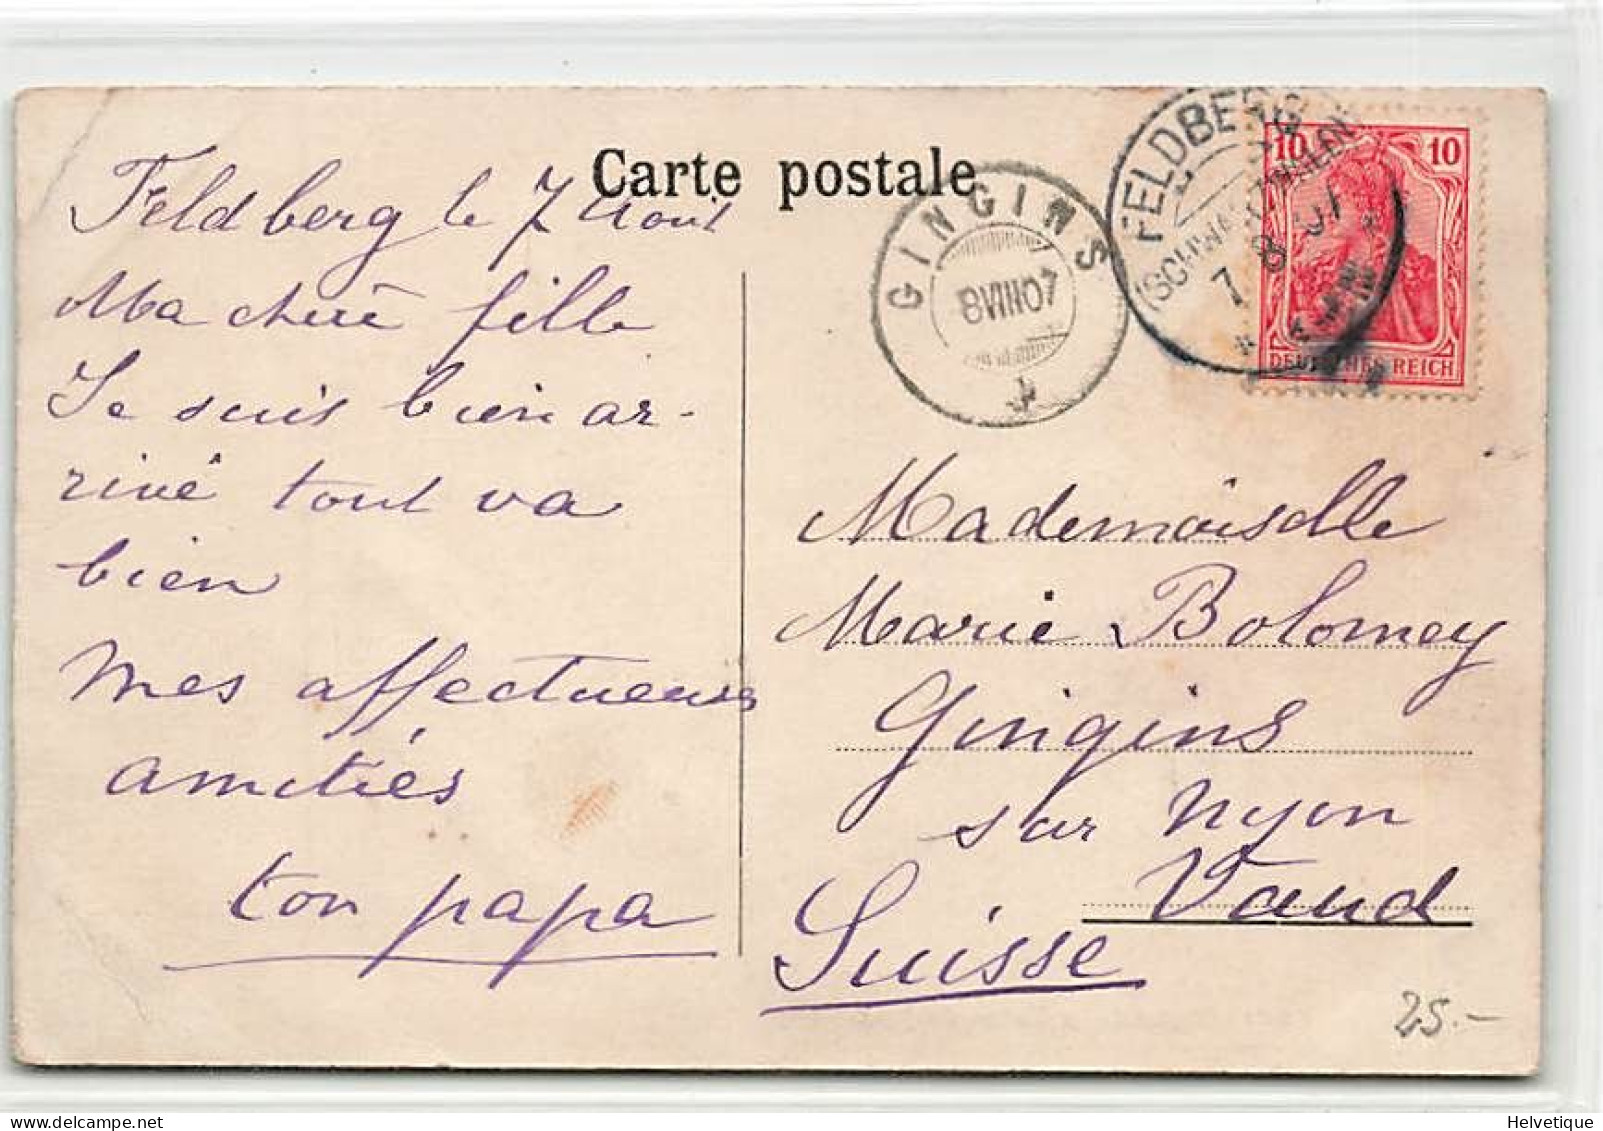 Carte postale
Feldberg le 7 Aout
Ma chère fille
Je suis bien ar-
rivé tout va
bien
Mes affectueuses
amitiés
ton papa
GINGINS
8 VIII 07
FELDBERG
(SCHWARZWALD)
7. 8. 07
10 10
DEUTSCHES REICH
Mademoiselle
Marie Bolomey
Gingins
sur Nyon
Vaud
Suisse
25.-
Helvetique